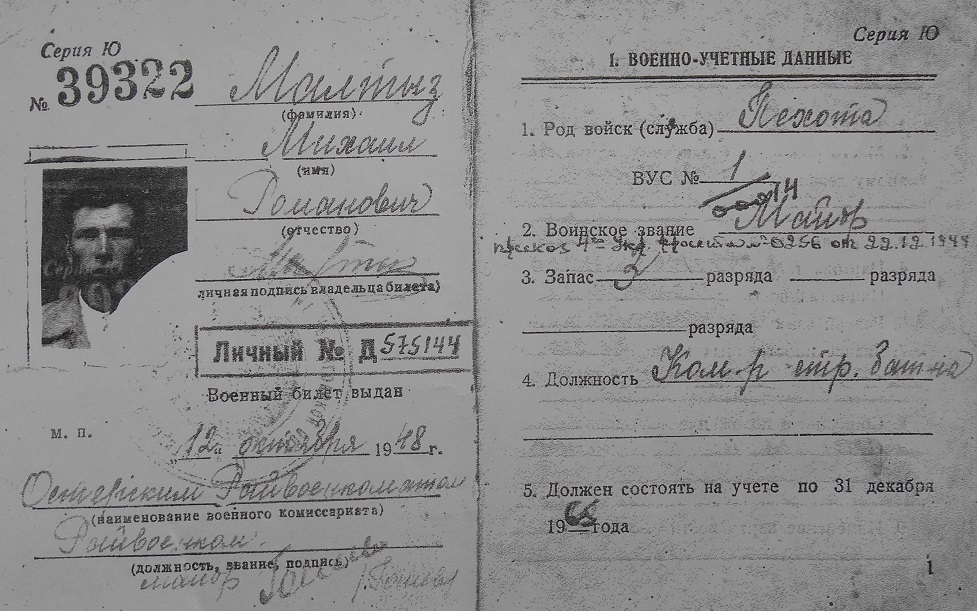 Серия Ю
№ 39322
Малтыз
(фамилия)
Михаил
(имя)
Романович
(отчество)
личная подпись владельца билета)
Серия Ю
Личный № Д 575144
Военный билет выдан
м. п.
"12" октября 1948 г.
Остерским Райвоенкоматом
(наименование военного комиссариата)
Райвоенком
(должность, звание, подпись)
майор
Серия Ю
I. ВОЕННО-УЧЕТНЫЕ ДАННЫЕ
1. Род войск (служба) Пехота
ВУС № 1
2. Воинское звание Майор
4 Укр. фронта № 0256 от 22.12.1944
3. Запас 2 разряда разряда
разряда
4. Должность Ком-р стр. бат-на
5. Должен состоять на учете по 31 декабря
19 года
1